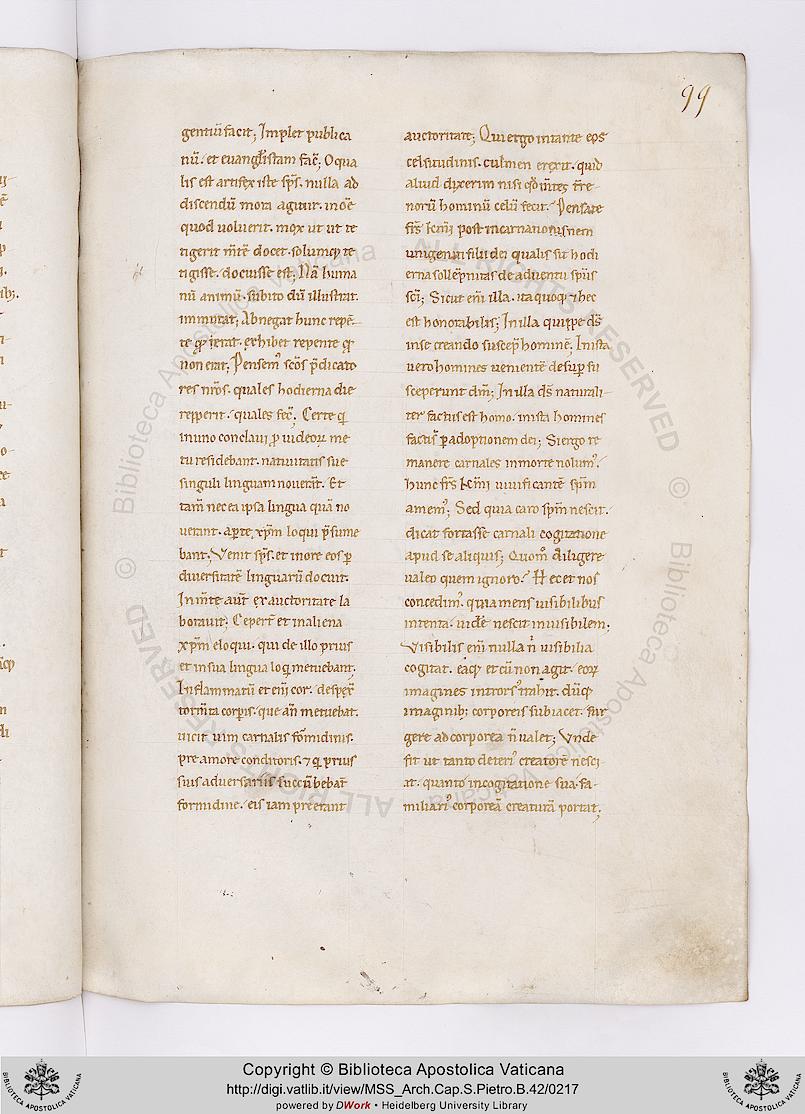 99
gentiū facit; Implet publica
nū. et euanglistam facͥ; O qua
lis est artifex iste sps̄. nulla ad
discendū mora agitur. in oē
quod uoluerit. mox ut ut te
tigerit mͥtē docet. solumq; te
tigisse. docuisse est; Nā huma
nū animū. subito dū illustrat.
immutat; Abnegat hunc repē
te qͥ erat. exhibet repente qͥ
non erat; Pensemꝰ scōs p̄dicato
res nr̄os. quales hodierna die
repperit. quales fec̄. Certe qͥ
in uno conclaui ꝑ iudeoꝝ me
tu residebant. natiuitatis sue
singuli linguam nouerāt. Et
tam̄ nec ea ipsa lingua quā no
uerant. aperte xp̄m loqui p̄sume
bant; Venit sps̄. et in ore eos ꝑ
diuersitatē linguarū docuit.
In mͥte aut̄ ex auctoritate la
borauit; Ceperͭ et in aliena
xp̄m eloqui. qui de illo prius
et in sua lingua loqͥ metuebant;
Inflammatū et eni͂ cor. despexͭ
torm̄ta corpis. que an̄ metuebat.
uicit uim carnalis formidinis.
pre amore conditoris. ⁊ qͥ prius
suis aduersariis succūbebat̄
formidine. eis iam preerant
auctoritate; Qui ergo in tante eos
celsitudinis. culmen erexit. quid
aliud dixerim nisi qd̄ m̄tes tr̄re
norū hominū celū fecit. Pensate
frs̄ km̄i post incarnationis nem
unigeniti filii dei qualis sit hodi
erna sollēpnitas de aduentu spūs
sc̄i; Sicut eni͂ illa. ita quoq; ⁊ hec
est honorabilis; In illa quippe ds̄
in se creando suscepͭ hominē; In ista
uero homines uenientē desuꝑ su
sceperunt dm̄; In illa ds̄ naturali
ter factus est homo. in ista homines
facti sͭ ꝑ adoptionem dei; Si ergo re
manere carnales in morte nolumꝰ.
hunc frs̄ km̄i uiuificantē spm̄
amemꝰ; Sed quia caro spm̄ nescit.
dicat fortasse carnali cogitatione
apud se aliquis; Quom̊ diligere
ualeo quem ignoro. Hec et nos
concedimꝰ. quia mens uisibilibus
intenta. uidē nescit inuisibilem;
Visibilis eni͂ nulla n̄ uisibilia
cogitat. eaq; et cū non agit. eoꝝ
imagines introrsꝰ trahit. dūq;
imaginib; corporeis subiacet. sur
gere ad corporea n̄ ualet; Vnde
fit ut tanto deteriꝰ creatorē nesci
at. quanto in cogitatione sua fa
miliariꝰ corporeā creaturā portat;
Copyright © Biblioteca Apostolica Vaticana
http://digi.vatlib.it/view/MSS_Arch.Cap.S.Pietro.B.42/0217
powered by DWork • Heidelberg University Library